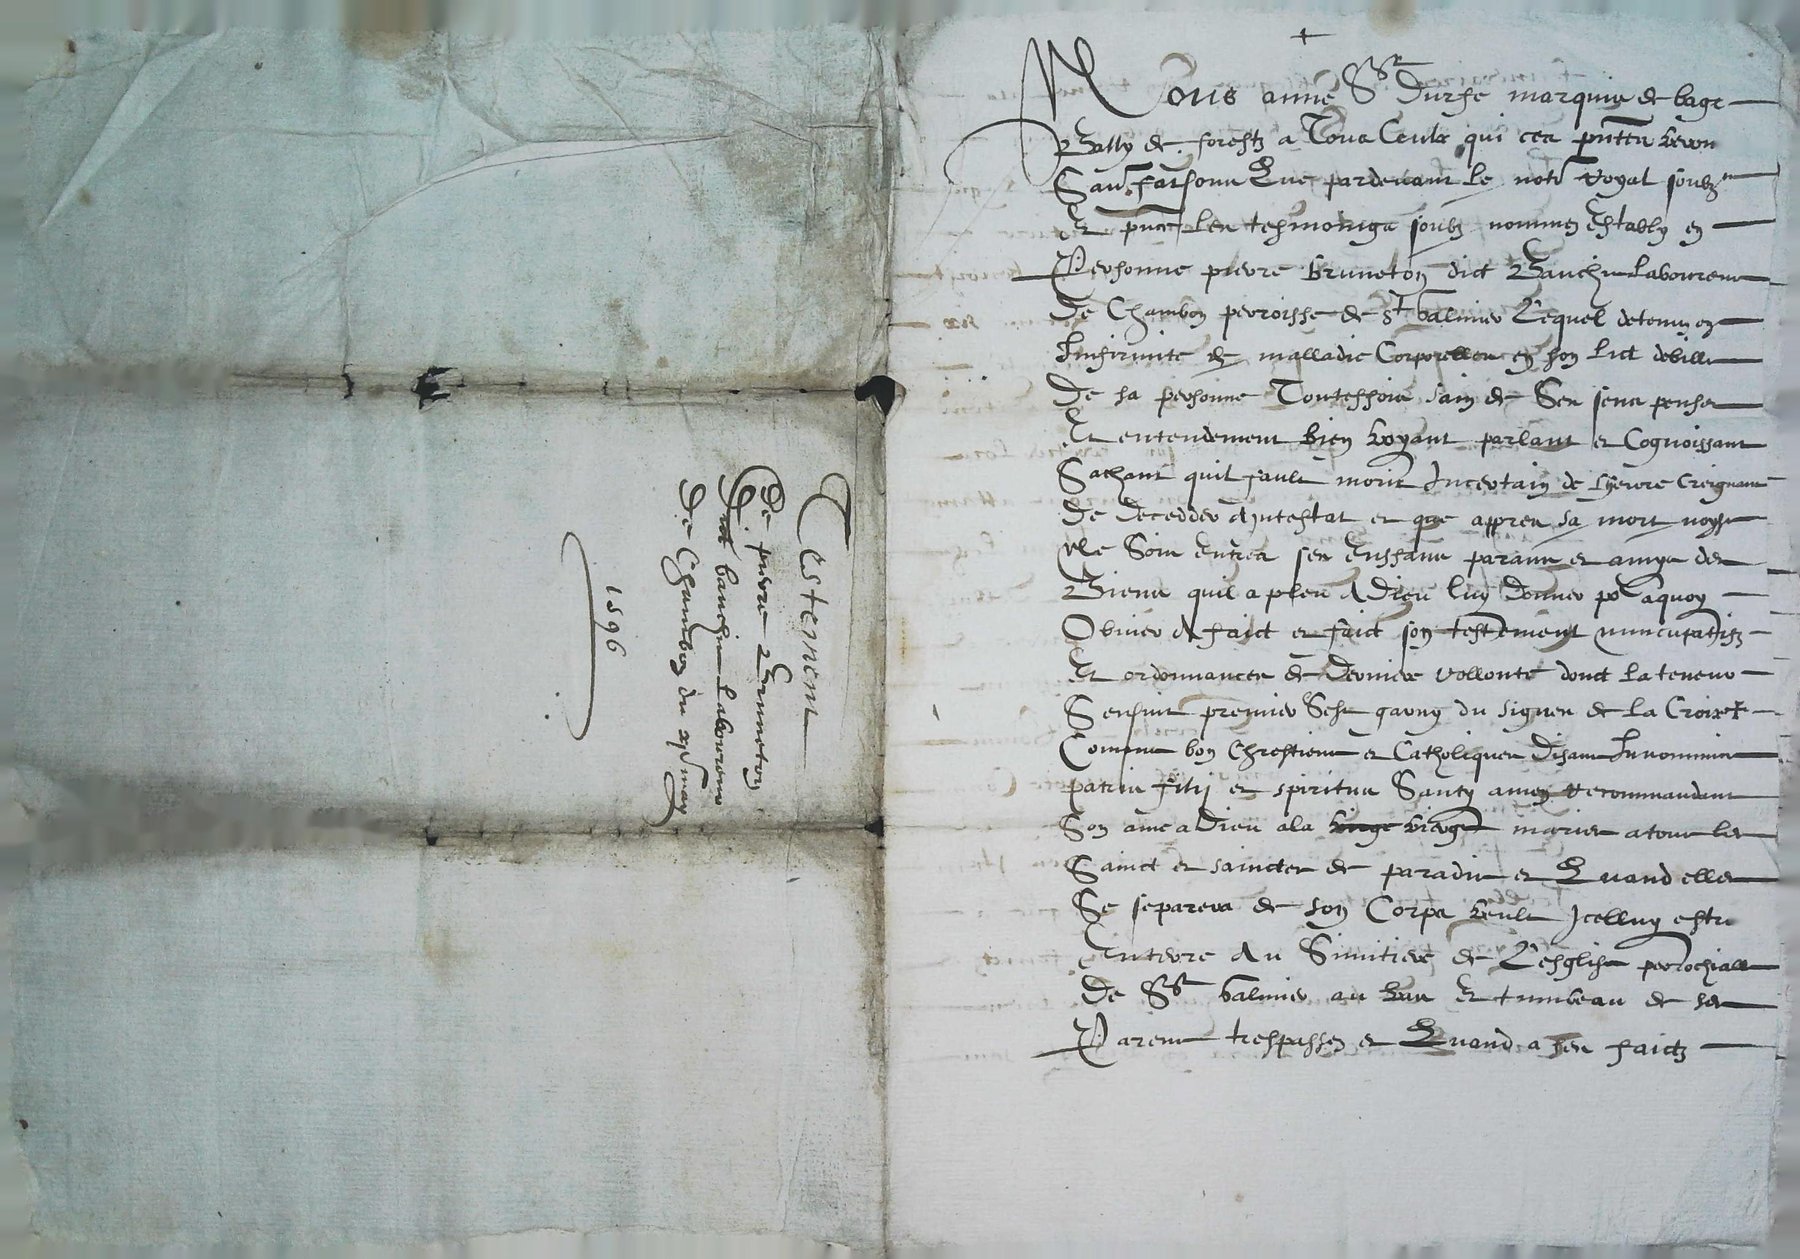 Testement
De pierre Bruneton
Dict bauchu Laboureur
De Chambon du xv may
1596
+
Nous anne Sr Durfe marquis de bage
Bailly de forestz a Tous Ceulx qui ces pntes verront
Savoir faisons Que pardevant le notre royal soubzne
Et pnce les tesmoings soubz nommez Estably en
Personne pierre bruneton dict Bauchu Laboureur
De Chambon perroisse de St balmier Lequel detenu en
Linfirmite de malladie Corporelle en son lict debille
De sa personne Touteffois sain de Ses sens penser
Et entendement bien voyant parlant et Cognoissant
Sachant quil fault morir Incertain de lheure Creignant
De decedder Aintestat et que appres sa mort noyse
Ne Soit Entres ses Enffans parans et amys des
Biens quil a pleu A Dieu luy Donner po Aquoy
Obvier A faict et faict son testement nuncupatifz
Et ordonnances de Derniere vollonte donct la teneur
Sensuit premier Sest garny du signe de la Croix +
Comme bon Chrestiens et Catholiques Disant In nomine
patris filij et spiritus Santy amen Recommandant
Son ame a Dieu a la vierge marie a tous les
Sainct et sainctes de paradis et Quand elle
Se separera de son Corps veult Icelluy estre
Enterre Au Simitiere de Lesglise perrochialle
De St balmier au et tumbeau de ses
Parens trespassez et Quand a ses faictz